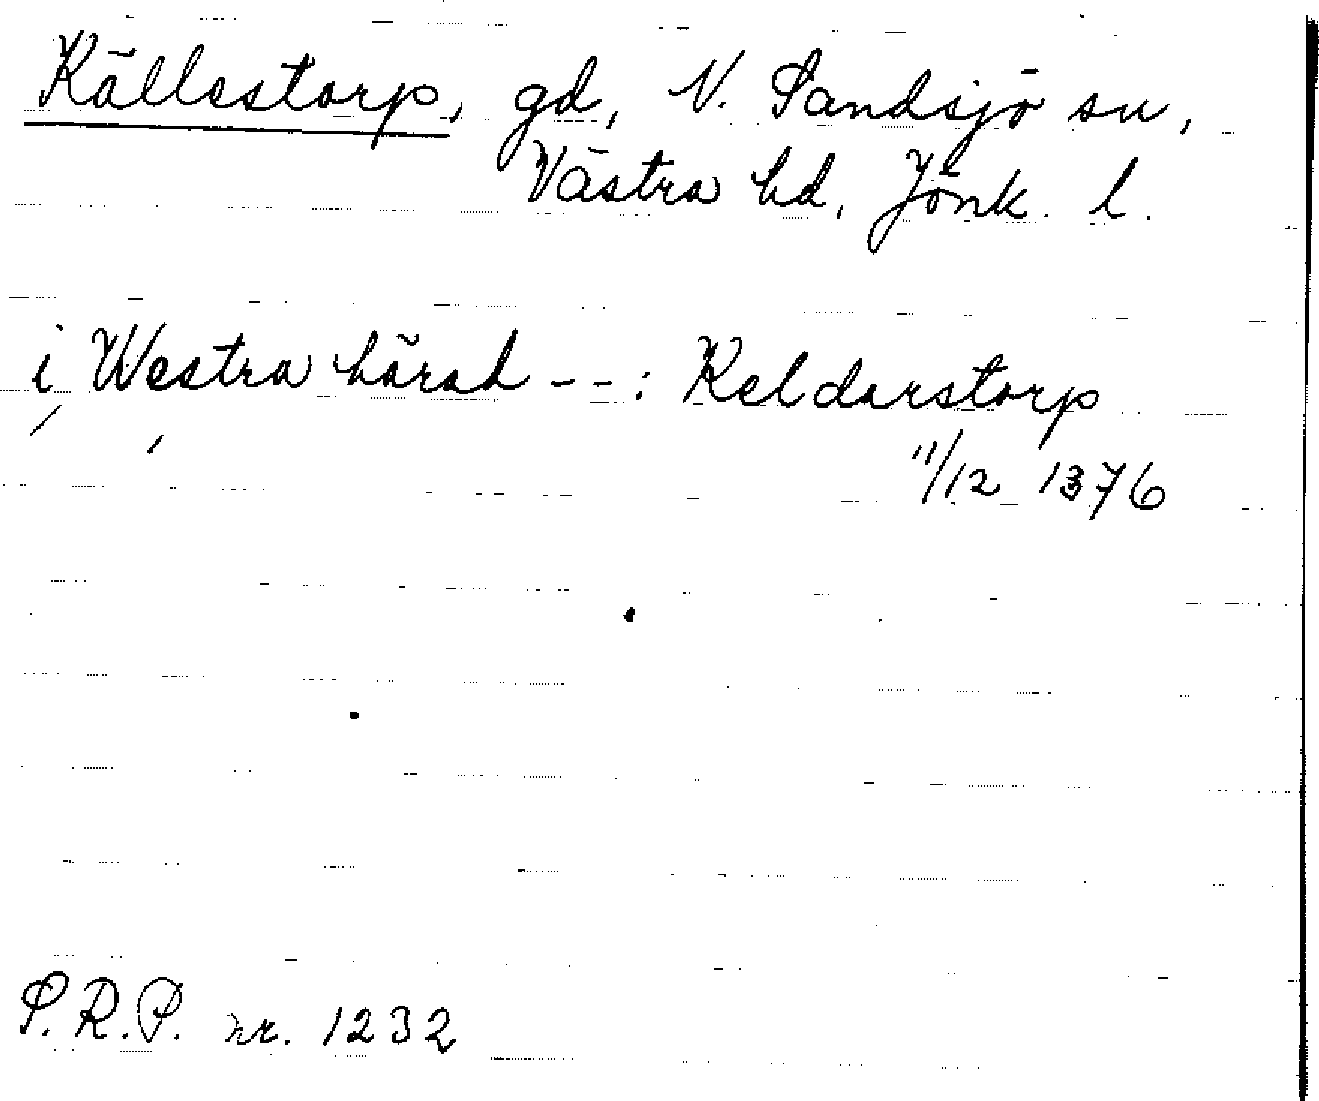 Källestorp, gd, N. Sandsjö sn,
Västra hd, Jönk. l.
i Westra häradh --: Keldarstorp
11/12 1376
S.R.P. nr. 1232